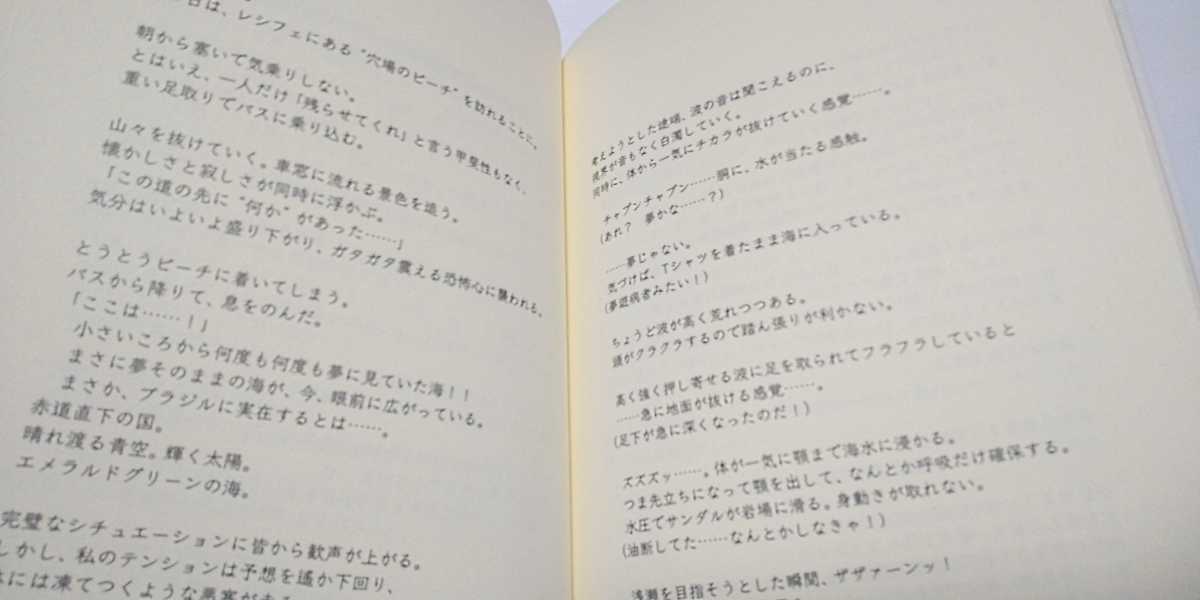 日は、レシフェにある“穴場のビーチ”を訪れることに。
朝から塞いで気乗りしない。
とはいえ、一人だけ「残らせてくれ」と言う甲斐性もなく、
重い足取りでバスに乗り込む。
山々を抜けていく。車窓に流れる景色を追う。
懐かしさと寂しさが同時に浮かぶ。
「この道の先に“何か”があった……」
気分はいよいよ盛り下がり、ガタガタ震える恐怖心に襲われる。
とうとうビーチに着いてしまう。
バスから降りて、息をのんだ。
「ここは……！」
小さいころから何度も何度も夢に見ていた海！！
まさに夢そのままの海が、今、眼前に広がっている。
まさか、ブラジルに実在するとは……。
赤道直下の国。
晴れ渡る青空。輝く太陽。
エメラルドグリーンの海。
完璧なシチュエーションに皆から歓声が上がる。
しかし、私のテンションは予想を遙か下回り、
には凍てつくような悪寒がある
考えようとした途端、波の音は聞こえるのに、
視界が音もなく白濁していく。
同時に、体から一気にチカラが抜けていく感覚……。
チャプンチャプン……胴に、水が当たる感触。
(あれ？　夢かな……？)
……夢じゃない。
気づけば、Tシャツを着たまま海に入っている。
(夢遊病者みたい！)
ちょうど波が高く荒れつつある。
頭がクラクラするので踏ん張りが利かない。
高く強く押し寄せる波に足を取られてフラフラしていると
……急に地面が抜ける感覚……。
(足下が急に深くなったのだ！)
ズズズッ……。体が一気に顎まで海水に浸かる。
つま先立ちになって顎を出して、なんとか呼吸だけ確保する。
水圧でサンダルが岩場に滑る。身動きが取れない。
(油断してた……なんとかしなきゃ！)
浅瀬を目指そうとした瞬間、ザザァーンッ！